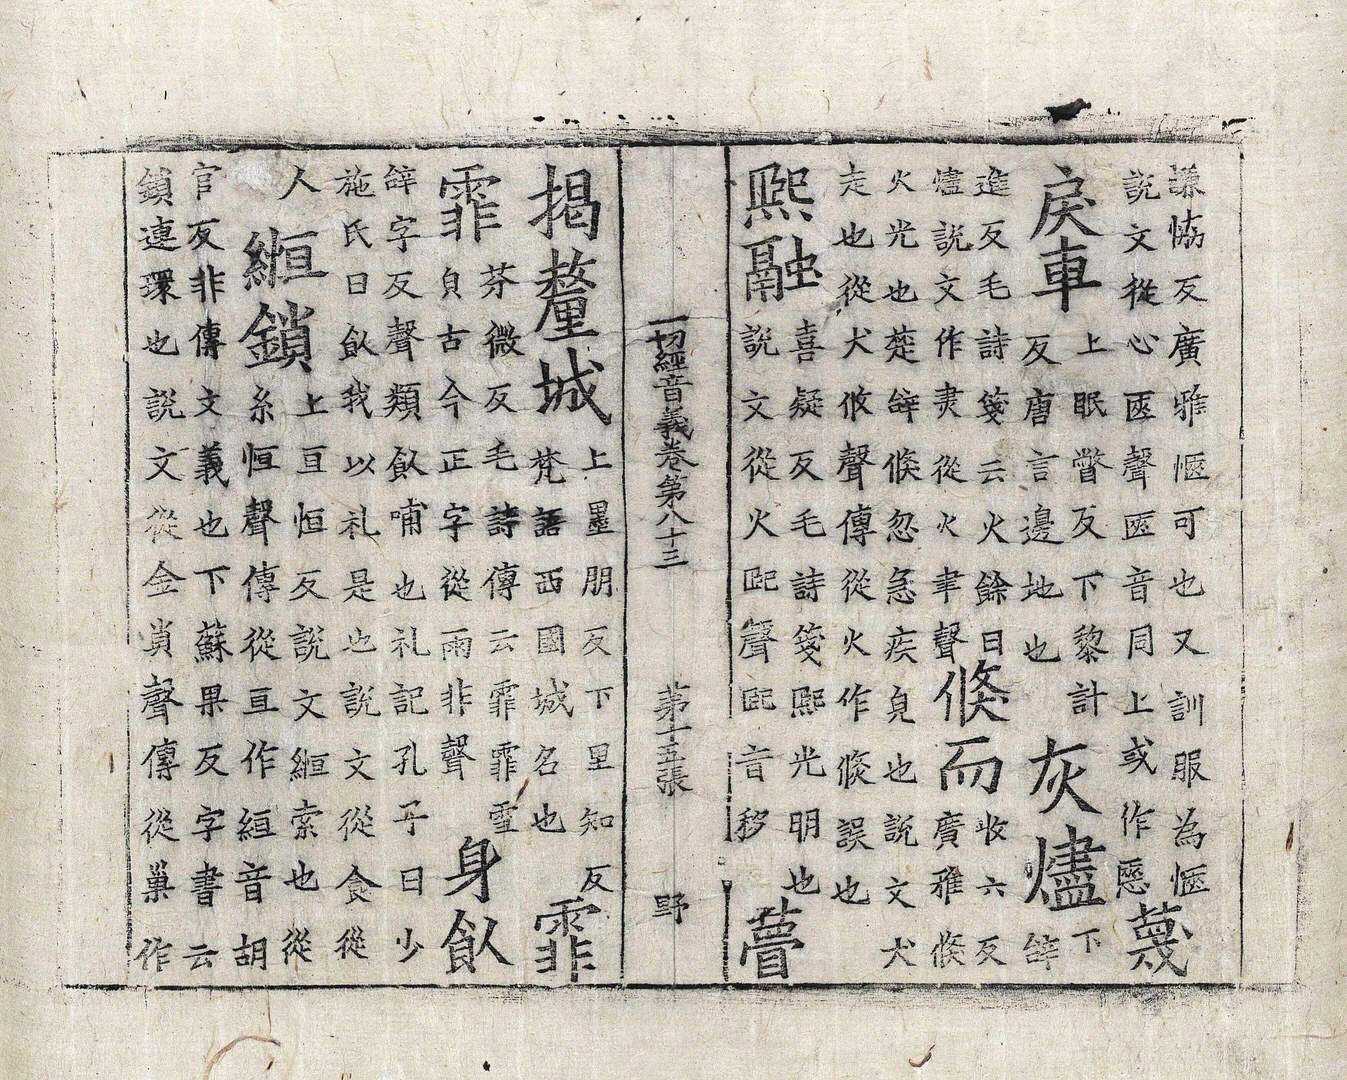 謙恊反廣雅愜可也又訓服為愜
說文從心匧聲匧音同上或作㥦
蔑
戾車
上眠瞥反下黎計
反唐言邊地也
灰燼
下
辝
進反毛詩箋云火餘曰
燼說文作㶳從火聿聲
倏而
收六反
廣雅倏
火光也楚辝倏忽急疾皃也說文犬
走也從犬攸聲傳從火作倏誤也
熙融
喜疑反毛詩箋熙光明也
說文從火巸聲巸音移
瞢
一切經音義卷第八十三 第十五張 野
揭釐城
上墨朋反下里知反
梵語西國城名也
霏
霏
芬微反毛詩傳云霏霏雪
皃古今正字從雨非聲
身飤
辝字反聲類飤哺也礼記孔子曰少
施氏曰飤我以礼是也說文從食從
人
緪鎖
上亘恒反說文緪索也從
糸恒聲傳從亘作絚音胡
官反非傳文義也下蘇果反字書云
鎖連環也說文從金𧴪聲傳從巢作